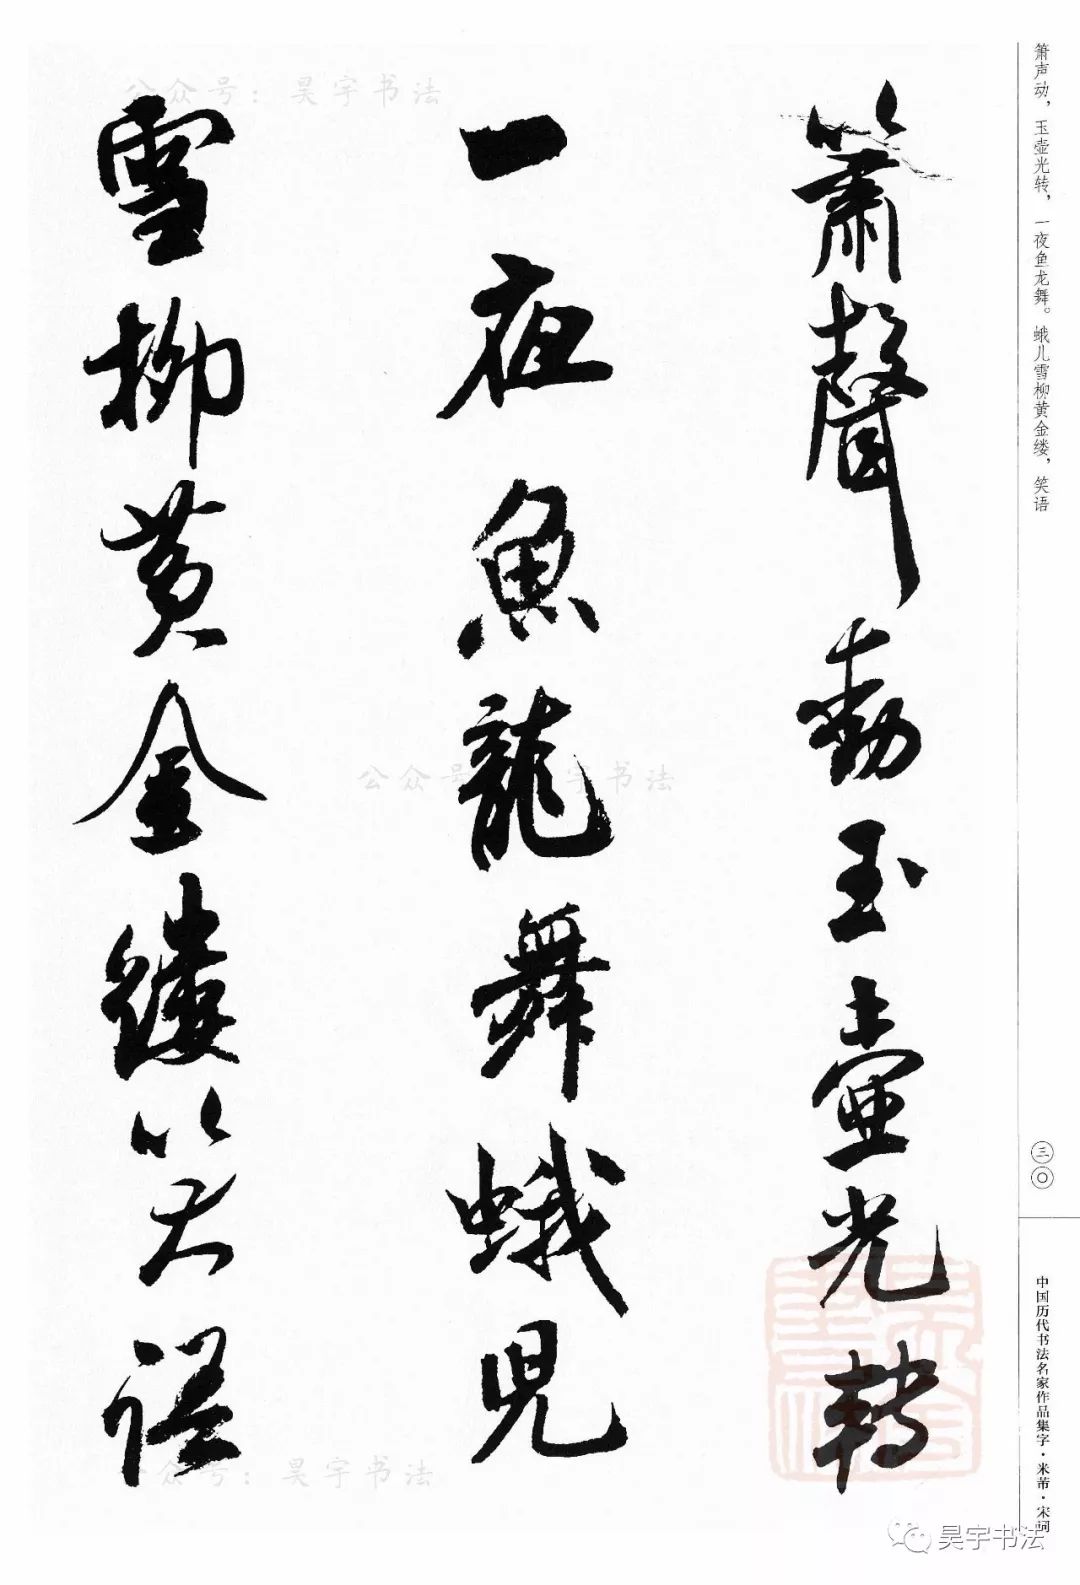 箫声动，玉壶光转，一夜鱼龙舞。蛾儿雪柳黄金缕，笑语
簫聲動玉壺光轉
一夜魚龍舞蛾兒
雪柳黃金縷笑語
三〇
中国历代书法名家作品集字·米芾·宋词
公众号：昊宇书法
公众号 宇书法
众号：昊宇书法
昊宇书法